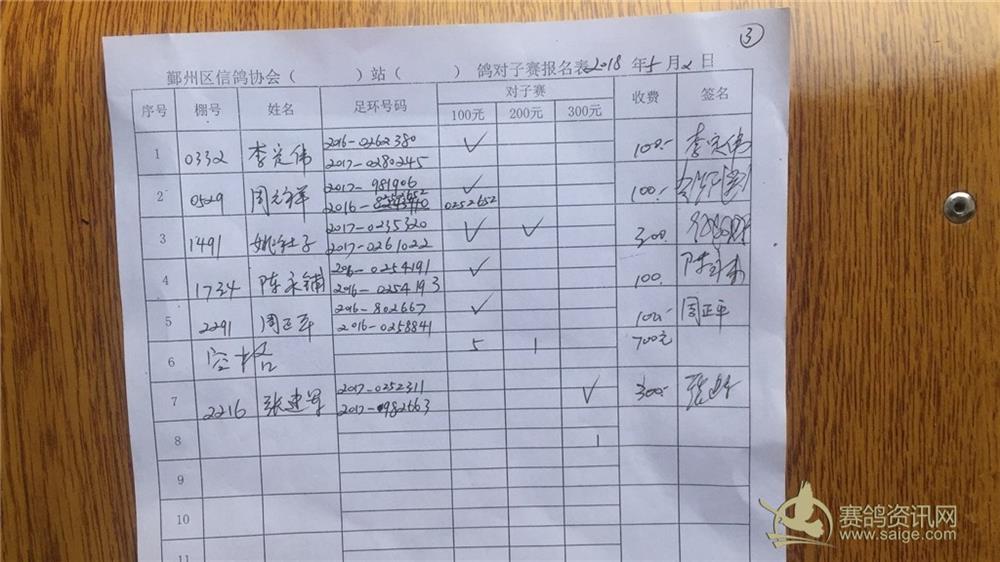 3
鄞州区信鸽协会（ ）站（ ）鸽对子赛报名表2018 年5 月2 日
序号 棚号 姓名 足环号码 对子赛 收费 签名
100元 200元 300元
1 0332 李定伟 2016-0262380 ✓ 100.- 李定伟
2017-0280245
2 0529 周元祥 2017-981906 ✓ 100.-
2016- 0252652 0252652
3 1491 2017-0235320 ✓ ✓ 300.
2017-0261022
4 1734 陈永辅 2016-0254191 ✓ 100.
2016-0254193
5 2291 周正平 2016-802667 ✓ 100.- 周正平
2016-0258841
6 空格 5 1 700元
7 2216 张建军 2017-0252311 ✓ 300.-
2017-0982663
8 1
9
10
11
赛鸽资讯网
www.saige.com